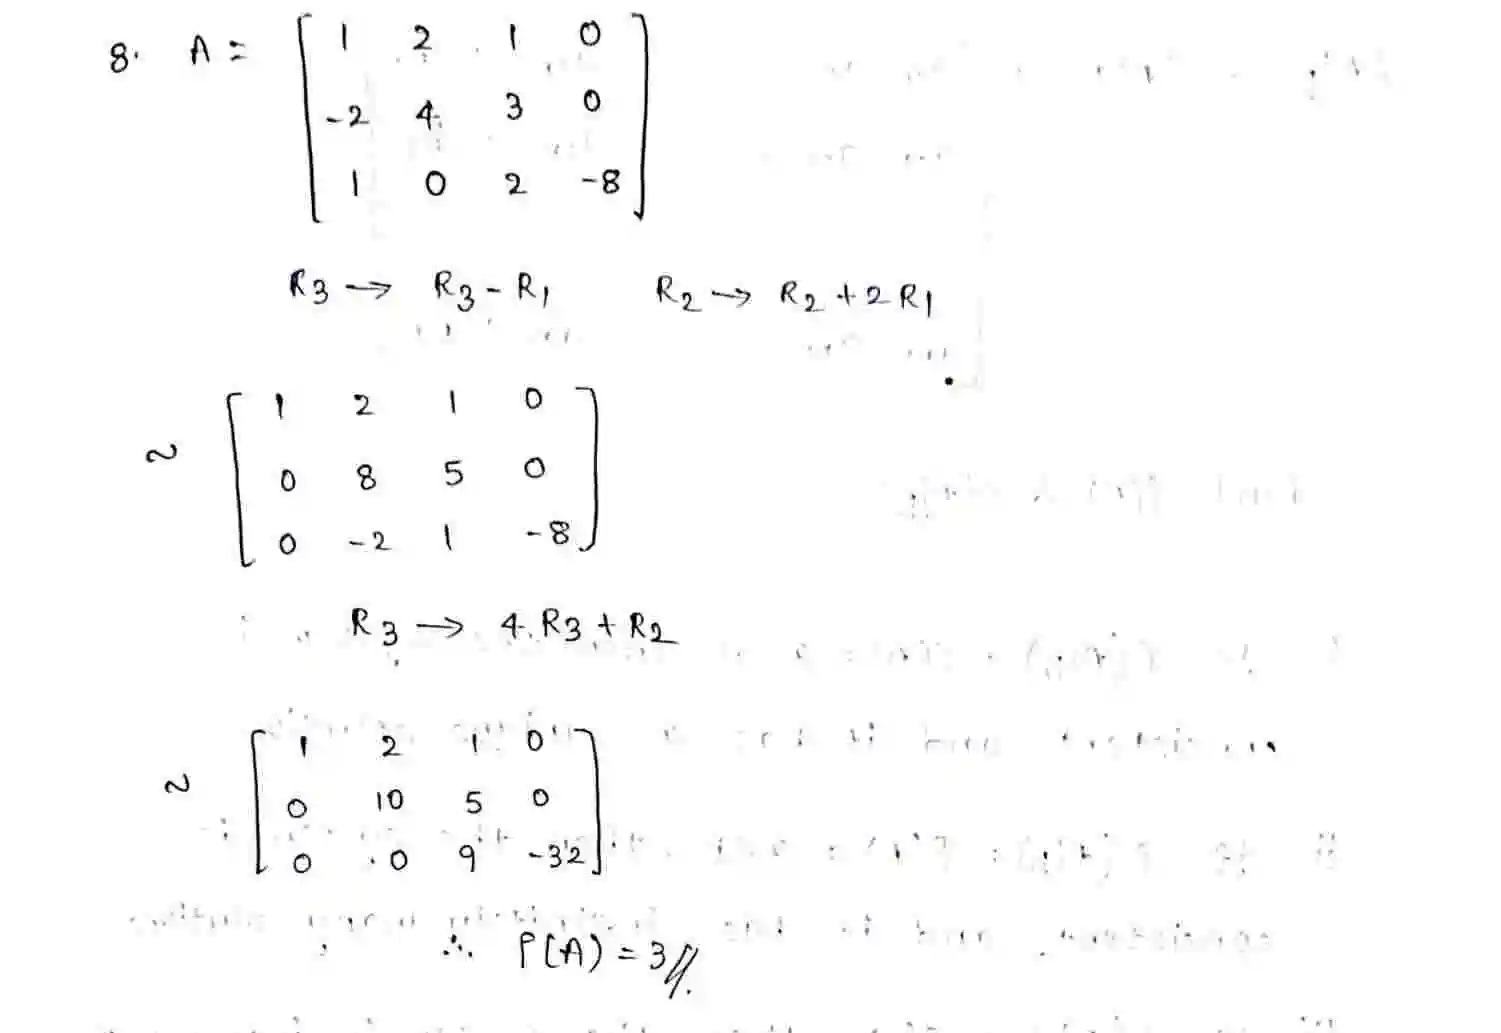 8. A = [ 1 2 1 0
-2 4 3 0
1 0 2 -8 ]
R3 → R3 - R1 R2 → R2 + 2R1
~ [ 1 2 1 0
0 8 5 0
0 -2 1 -8 ]
R3 → 4.R3 + R2
~ [ 1 2 1 0
0 10 5 0
0 0 9 -32 ]
∴ P(A) = 3//.